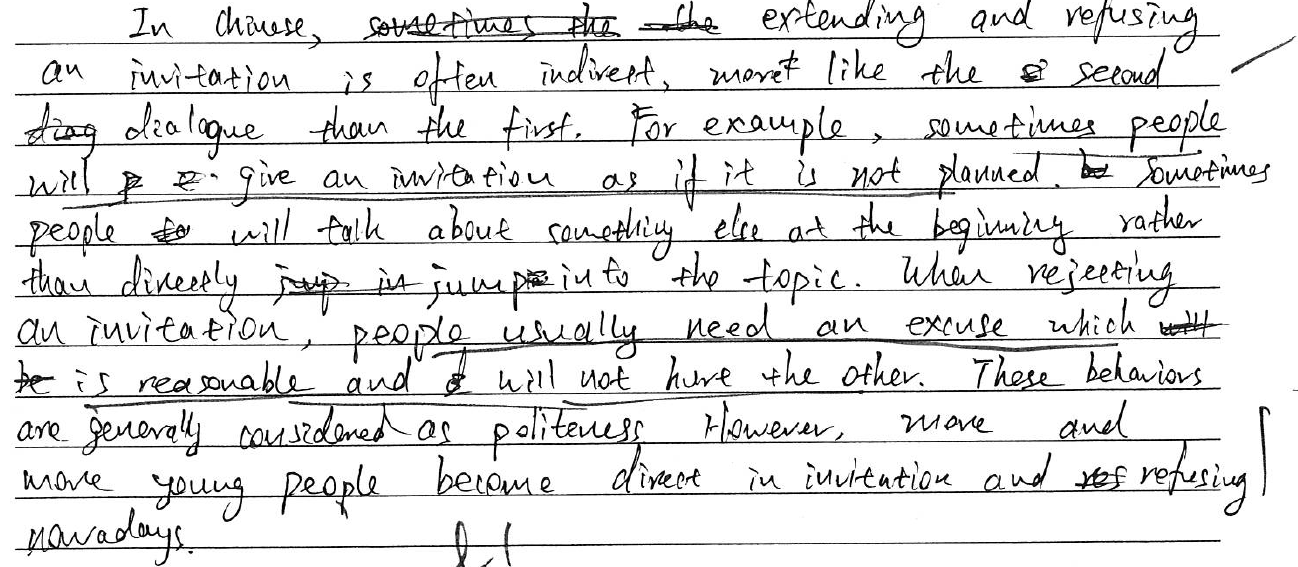 In Chinese, sometimes the the extending and refusing
an invitation is often indirect, more like the second
diag dialogue than the first. For example, sometimes people
will give an invitation as if it is not planned. be Sometimes
people to will talk about something else at the beginning rather
than directly jump in jump into the topic. When rejecting
an invitation, people usually need an excuse which will
be is reasonable and will not hurt the other. These behaviors
are generally considered as politeness. However, more and
more young people become direct in invitation and ref refusing
nowadays.